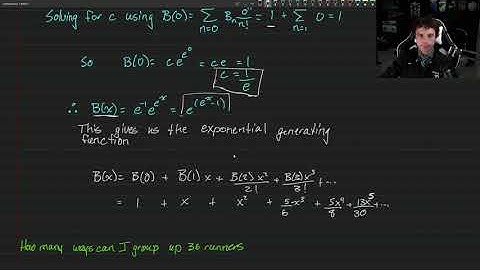 Solving for c using B(0) = ∑_{n=0} B_n 0^n/n! = 1 + ∑_{n=1} 0 = 1
So B(0) = ce^{e^0} = ce = 1
c = 1/e
∴ B(x) = e^{-1} e^{e^x} = e^{(e^x-1)}
This gives us the exponential generating
function
B(x) = B(0) + B(1)x + B(2)x^2/2! + B(3)x^3/3! + ...
= 1 + x + x^2 + 5/6 x^3 + 5x^4/8 + 13x^5/30 + ...
How many ways can I group up 36 runners